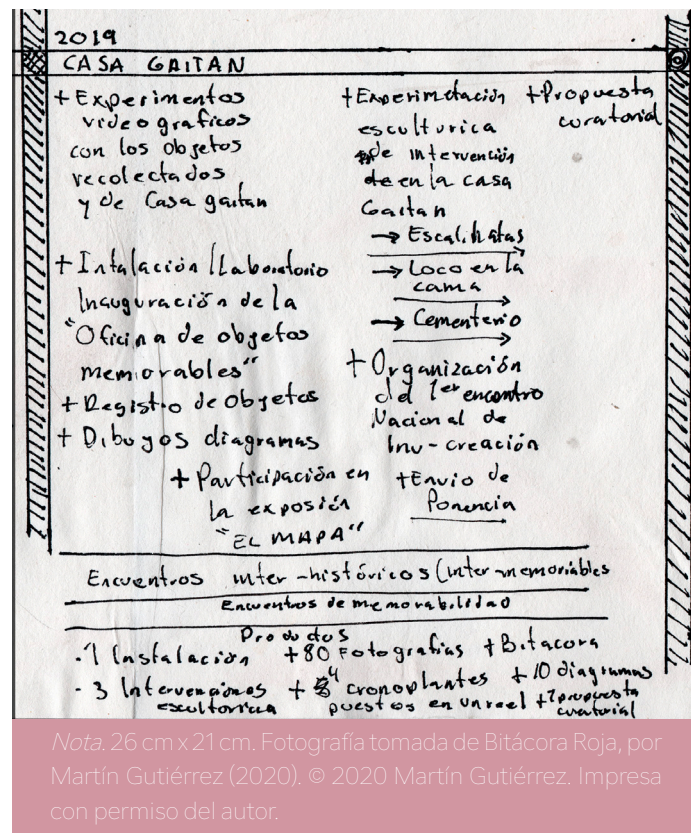 2019
CASA GAITAN
+ Experimentos
videograficos
con los objetos
recolectados
y de Casa gaitan
+ Intalación / Laboratorio
Inauguración de la
"Oficina de objetos
memorables"
+ Registro de objetos
+ Dibujos diagramas
+ Participación en
la exposión
"EL MAPA"
+ Experimetación
escultorica
de intervención
de en la casa
Gaitan
→ Escalinatas
→ Loco en la
cama
→ Cementerio
+ Organización
del 1er encontro
Nacional de
Inv-creación
+ Envio de
Ponencia
+ Propuesta
curatorial
Encuentros inter-históricos (inter-memoriables
Encuentros de memorabilidad
Productos
- 1 Instalación + 80 Fotografias + Bitacora
- 3 Intervenciones + 4 cronoplantes + 10 diagramas
escultorica puestos en un reel + 1 propuesta
curatorial
Nota. 26 cm x 21 cm. Fotografía tomada de Bitácora Roja, por
Martín Gutiérrez (2020). © 2020 Martín Gutiérrez. Impresa
con permiso del autor.